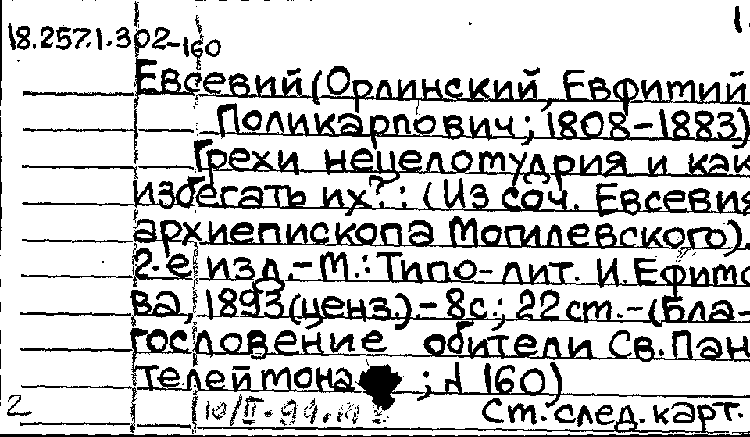 1.
18.257.1.302-160
Евсевий (Орлинский, Евфимий
Поликарпович; 1808-1883)
Грехи нецеломудрия и как
избегать их? : (Из соч. Евсевия
архиепископа Могилевского).
2-е изд. - М.: Типо-лит. И. Ефимо
ва, 1893 (ценз.) - 8 с.; 22 ст. - (Бла-
гословение обители Св. Пан
телеймона ; 160)
2
Ст. след. карт.